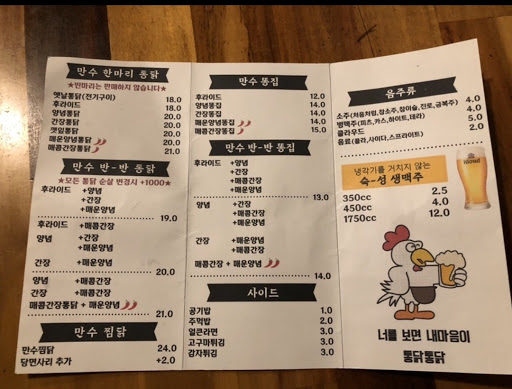 만수 한마리 통닭
★반마리는 판매하지 않습니다★
옛날통닭(전기구이) 18.0
후라이드 18.0
양념통닭 20.0
간장통닭 20.0
깻잎통닭 20.0
매운양념통닭 20.0
매콤간장통닭 21.0
만수 반-반 통닭
★모든 통닭 순살 변경시 +1000★
후라이드 +양념
+간장
+매운양념
19.0
후라이드 +매콤간장
양념 +간장
+매운양념
간장 +매운양념
20.0
양념 +매콤간장
간장 +매콤간장
매콤간장통닭 + 매운양념
21.0
만수 찜닭
만수찜닭 24.0
당면사리 추가 +2.0
만수 똥집
후라이드 12.0
양념똥집 14.0
간장똥집 14.0
매운양념똥집 14.0
매콤간장똥집 15.0
만수 반-반 똥집
후라이드 +양념
+간장
+매콤간장
+매운양념
13.0
양념 +간장
+매콤간장
+매운양념
간장 +매운양념
+매콤간장
매콤간장 + 매운양념
14.0
사이드
공기밥 1.0
주먹밥 2.0
얼큰라면 3.0
고구마튀김 3.0
감자튀김 3.0
음주류
소주(처음처럼,참소주,참이슬,진로,금복주) 4.0
병맥주(피츠,카스,하이트,테라) 4.0
클라우드 5.0
음료(콜라,사이다,스프라이트) 2.0
냉각기를 거치지 않는
숙-성 생맥주
350cc 2.5
450cc 4.0
1750cc 12.0
너를 보면 내마음이
통닭통닭